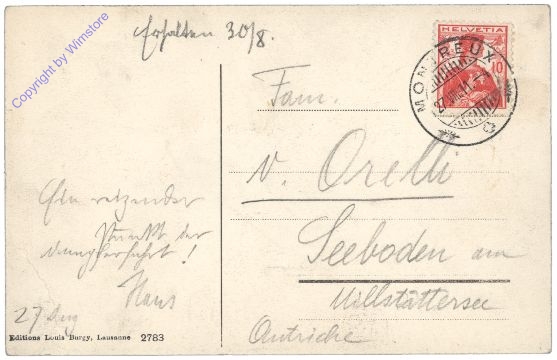 Copyright by Wimstore
Erhalten 30/8.
HELVETIA
10
MONTREUX
27
11
Fam.
v. Orelli
Seeboden am
Millstättersee
Autriche
Ein reizender
Punkt der
Hans
27 Aug
Editions Louis Burgy, Lausanne 2783